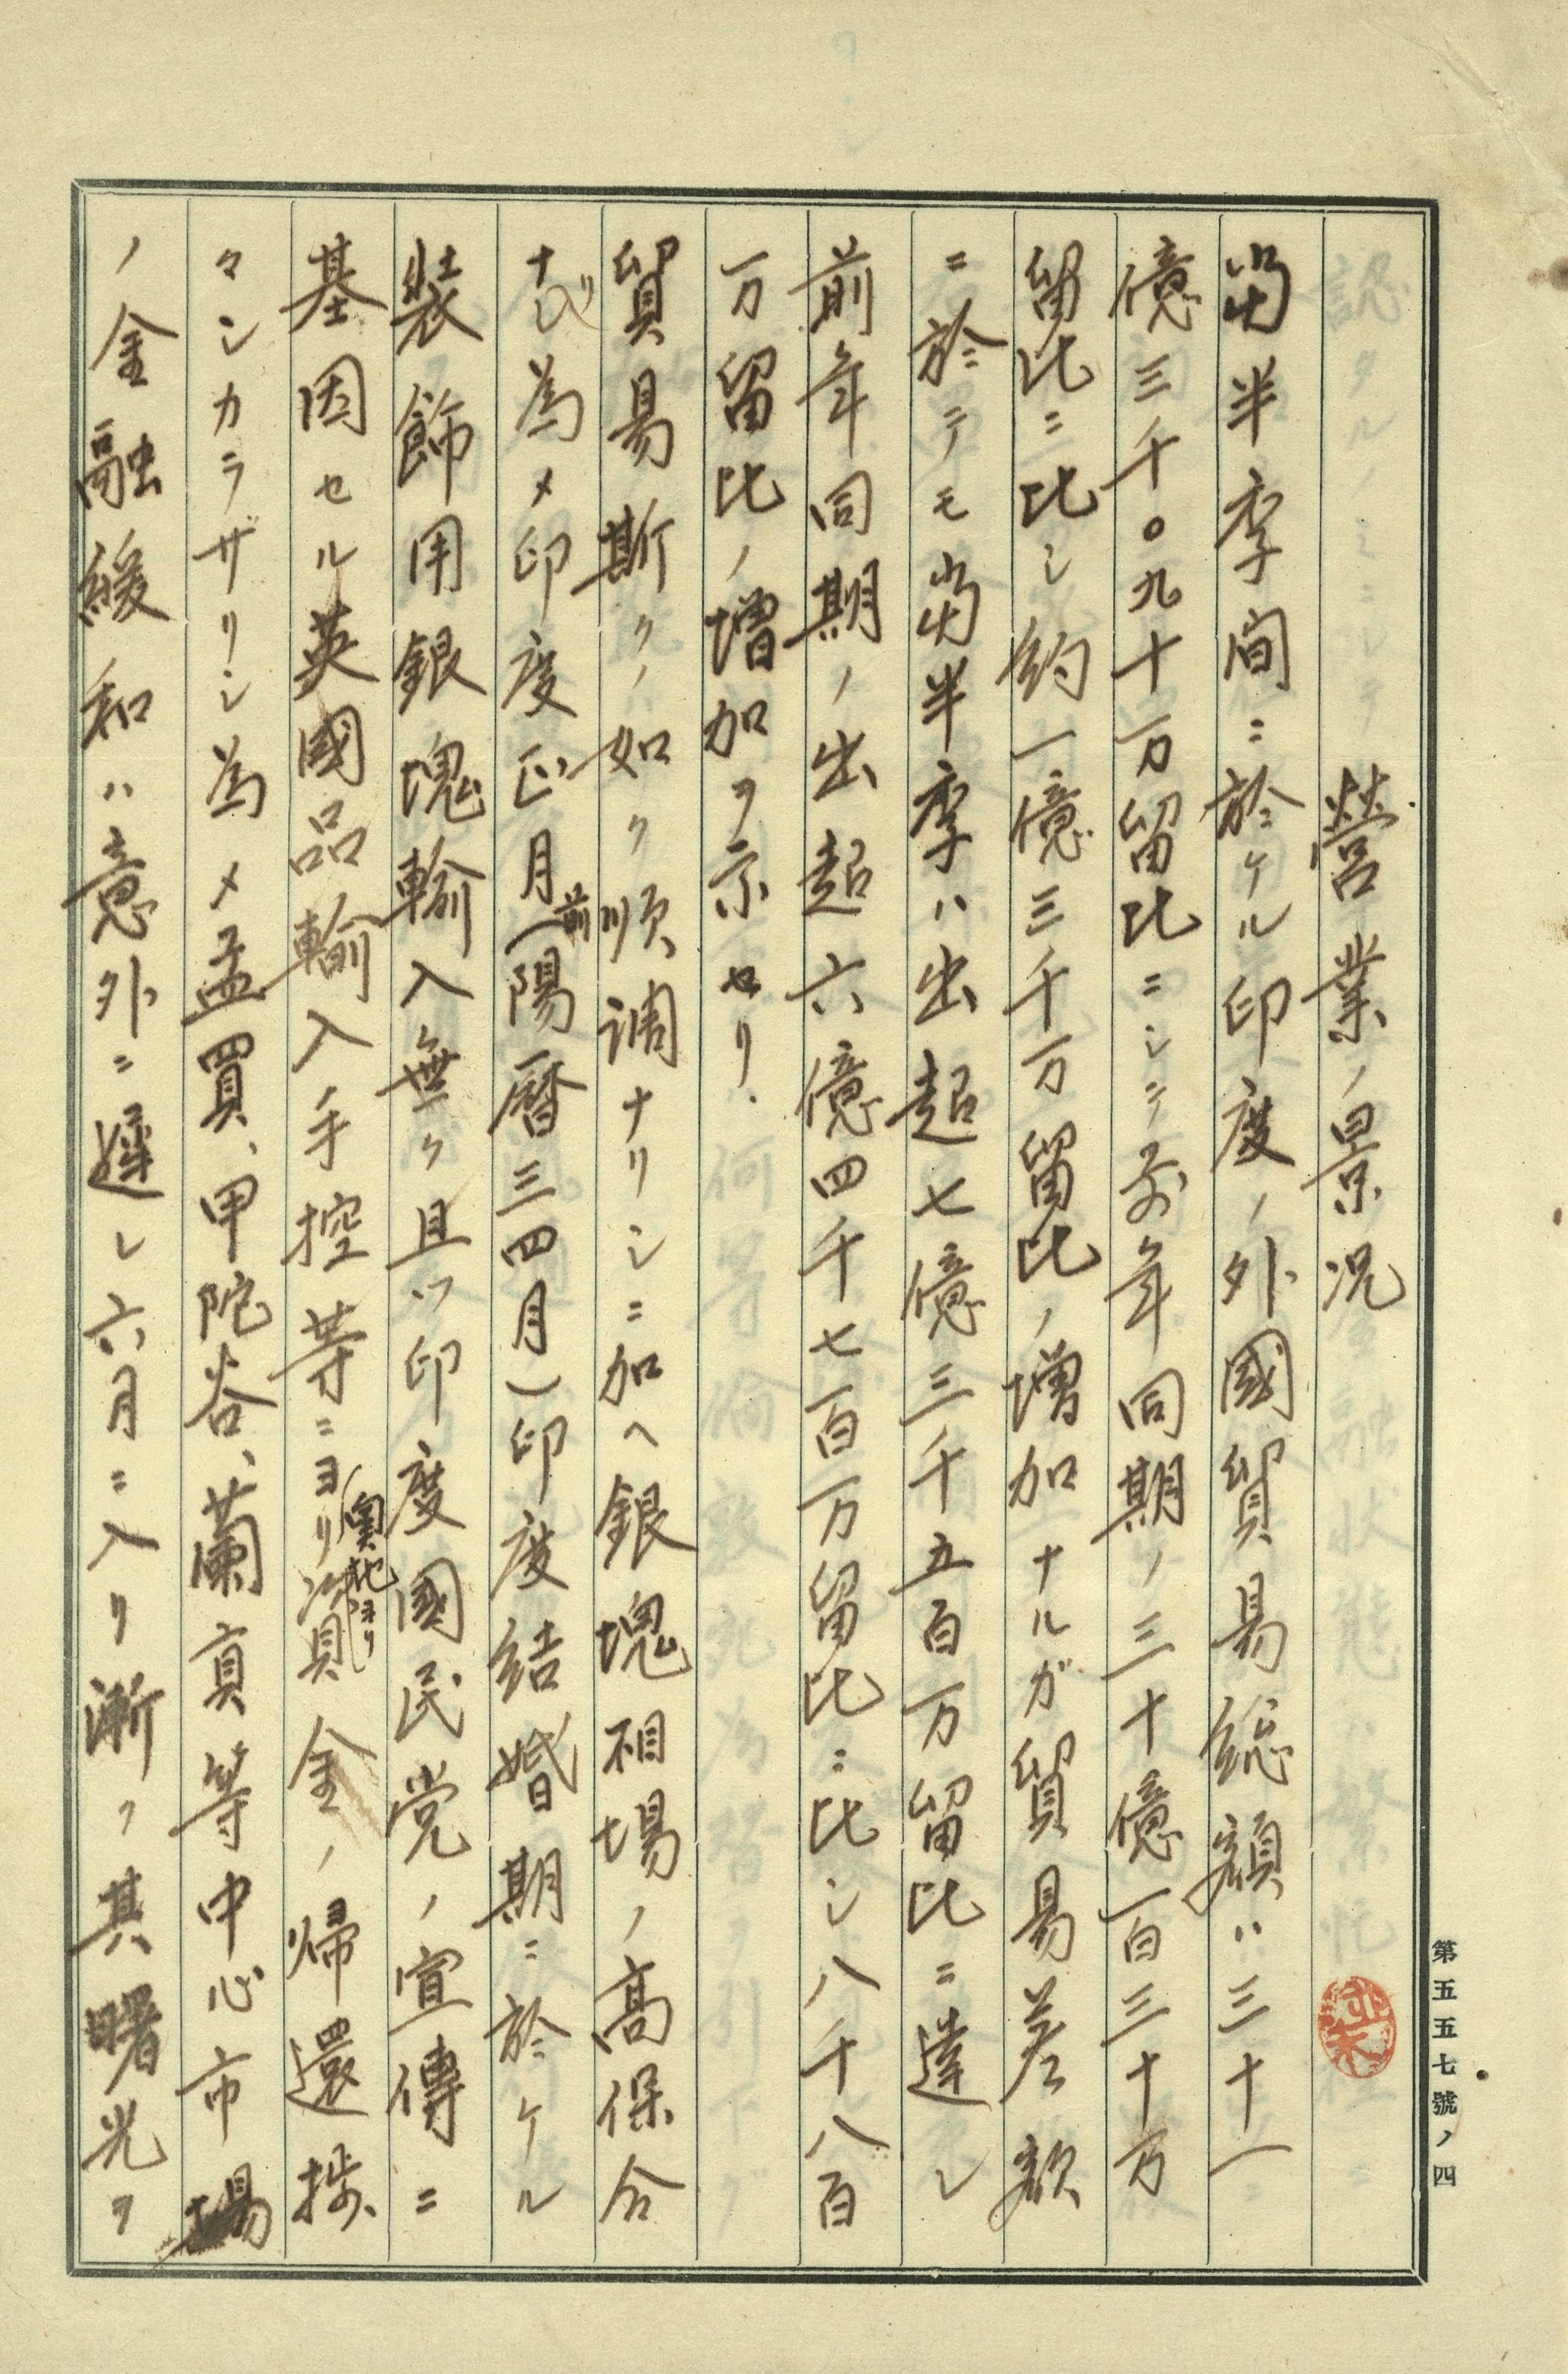 營業ノ景況
當半季間ニ於ケル印度ノ外國貿易総額ハ三十一
億三千〇九十万留比ニシテ前年同期ノ三十億一百三十万
留比ニ比シ約一億三千万留比ノ增加ナルガ貿易差額
ニ於テモ當半季ハ出超七億三千五百万留比ニ達シ
前年同期ノ出超六億四千七百万留比ニ比シ八千八百
万留比ノ增加ヲ示セリ.
貿易斯クノ如ク順調ナリシニ加ヘ銀塊相場ノ高保合
ナリ為メ印度正月前(陽曆三四月)印度結婚期ニ於ケル
裝飾用銀塊輸入無ク且ツ印度國民党ノ宣傳ニ
基因セル英國品輸入手控等ニヨリ(奥地ヨリ)資金ノ帰還捗
々シカラザリシ為メ孟買、甲陀谷、蘭貢等中心市場
ノ金融緩和ハ意外ニ遲レ六月ニ入リ漸ク其曙光ヲ
第五五七號ノ四